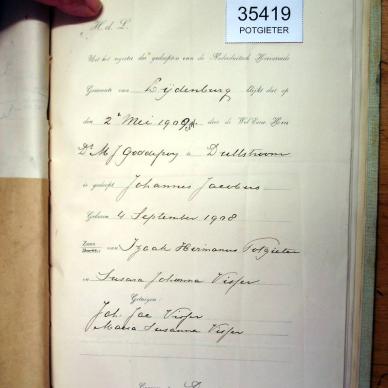 35419
POTGIETER
H. d. L.
Uit het register der gedoopten van de Nederduitsch Hervormde
Gemeente van Lijdenburg blijkt dat op
den 2e Mei 1909 door de Wel Eerw. Heer
Ds M J Goddefroy Dullstroom
is gedoopt Johannes Jacobus
Geboren 4 September 1908
Zoon van Izaak Hermanus Potgieter
en Susara Johanna Visser
Getuigen
Joh. Jac Visser
Maria Susanna Visser